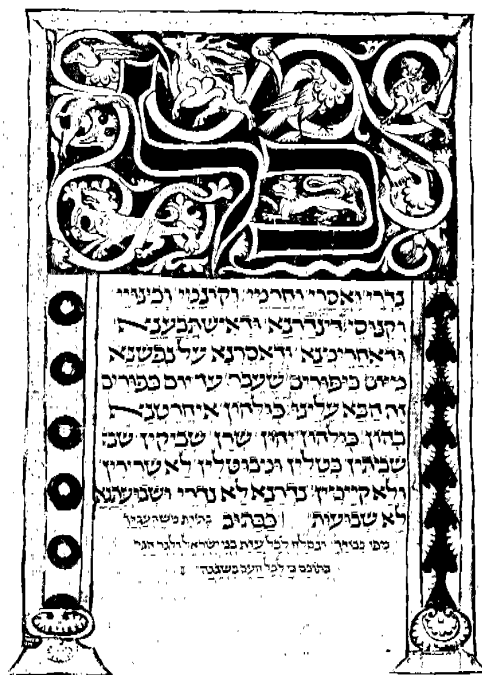 כל
נדרי ואסרי וחרמי וקינמי וכינויי
וקנוסי דינדרנא ודאישתבענא
ודאחרימנא ודאסרנא על נפשנא
מיום כיפורים שעבר עד יום כפורים
זה הבא עלינו כולהון איחרטנא
בהון כולהון יהון שרן שביקין שבי
שביתין בטלין ומבוטלין לא שרירין
ולא קיימין נדרנא לא נדרי ושבועתנא
לא שבועות ככתוב בתורת משה עבדך
מפי כבודך ונסלח לכל עדת בני ישראל ולגר הגר
בתוכם כי לכל העם בשגגה